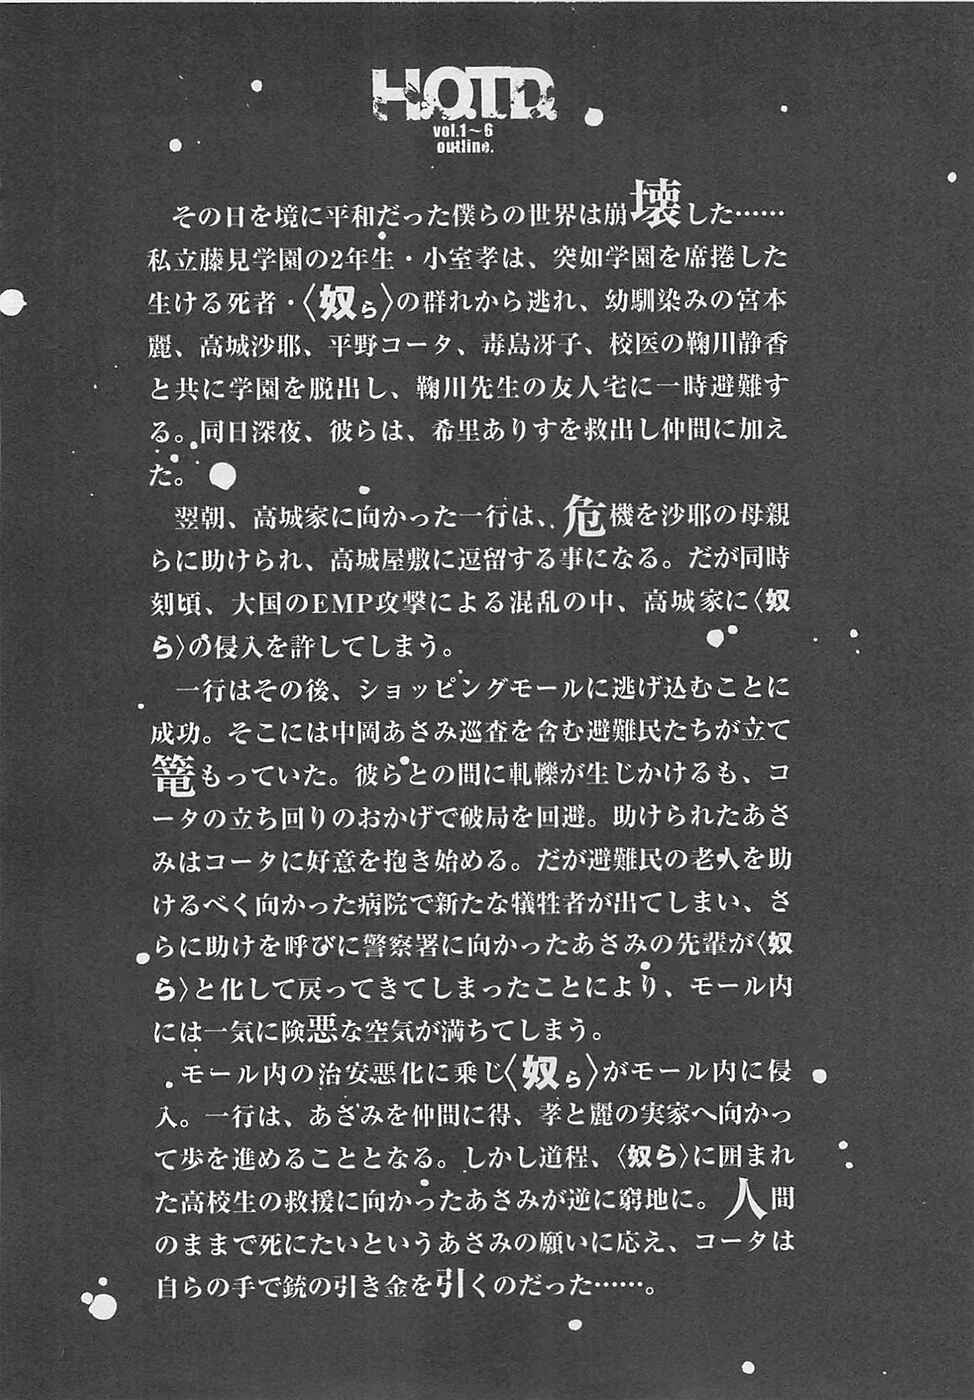 H.O.T.D.
vol.1〜6
outline.
その日を境に平和だった僕らの世界は崩壊した……
私立藤見学園の2年生・小室孝は、突如学園を席捲した
生ける死者・〈奴ら〉の群れから逃れ、幼馴染みの宮本
麗、高城沙耶、平野コータ、毒島冴子、校医の鞠川静香
と共に学園を脱出し、鞠川先生の友人宅に一時避難す
る。同日深夜、彼らは、希里ありすを救出し仲間に加え
た。
翌朝、高城家に向かった一行は、危機を沙耶の母親
らに助けられ、高城屋敷に逗留する事になる。だが同時
刻頃、大国のEMP攻撃による混乱の中、高城家に〈奴
ら〉の侵入を許してしまう。
一行はその後、ショッピングモールに逃げ込むことに
成功。そこには中岡あさみ巡査を含む避難民たちが立て
篭もっていた。彼らとの間に軋轢が生じかけるも、コ
ータの立ち回りのおかげで破局を回避。助けられたあさ
みはコータに好意を抱き始める。だが避難民の老人を助
けるべく向かった病院で新たな犠牲者が出てしまい、さ
らに助けを呼びに警察署に向かったあさみの先輩が〈奴
ら〉と化して戻ってきてしまったことにより、モール内
には一気に険悪な空気が満ちてしまう。
モール内の治安悪化に乗じ〈奴ら〉がモール内に侵
入。一行は、あさみを仲間に得、孝と麗の実家へ向かっ
て歩を進めることとなる。しかし道程、〈奴ら〉に囲まれ
た高校生の救援に向かったあさみが逆に窮地に。人間
のままで死にたいというあさみの願いに応え、コータは
自らの手で銃の引き金を引くのだった……。